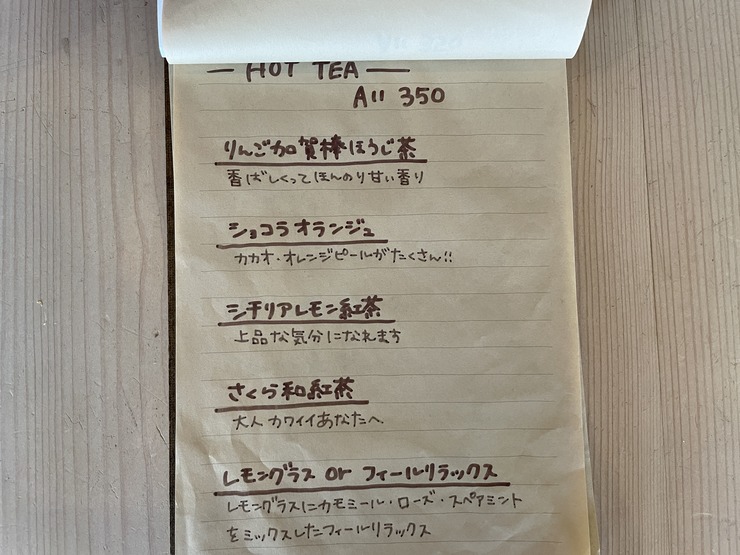 — HOT TEA —
All 350
りんご加賀棒ほうじ茶
香ばしくってほんのり甘い香り
ショコラオランジュ
カカオ・オレンジピールがたくさん!!
シチリアレモン紅茶
上品な気分になれます
さくら和紅茶
大人カワイイあなたへ.
レモングラス or フィールリラックス
レモングラスにカモミール・ローズ・スペアミント
をミックスしたフィールリラックス